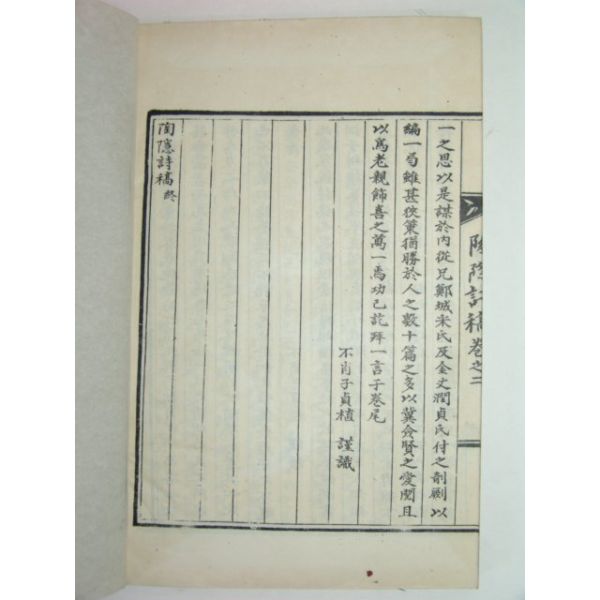 陶隱詩稿卷之二
一之思以是謀於内從兄鄭城宋氏及金丈潤貞氏付之剞劂以
編一局雖甚狹策猶勝於人之數十篇之多以冀僉賢之愛閱且
以爲老親飾喜之萬一焉功已訖拜一言于卷尾
不肖子貞植 謹識
陶隱詩稿 終